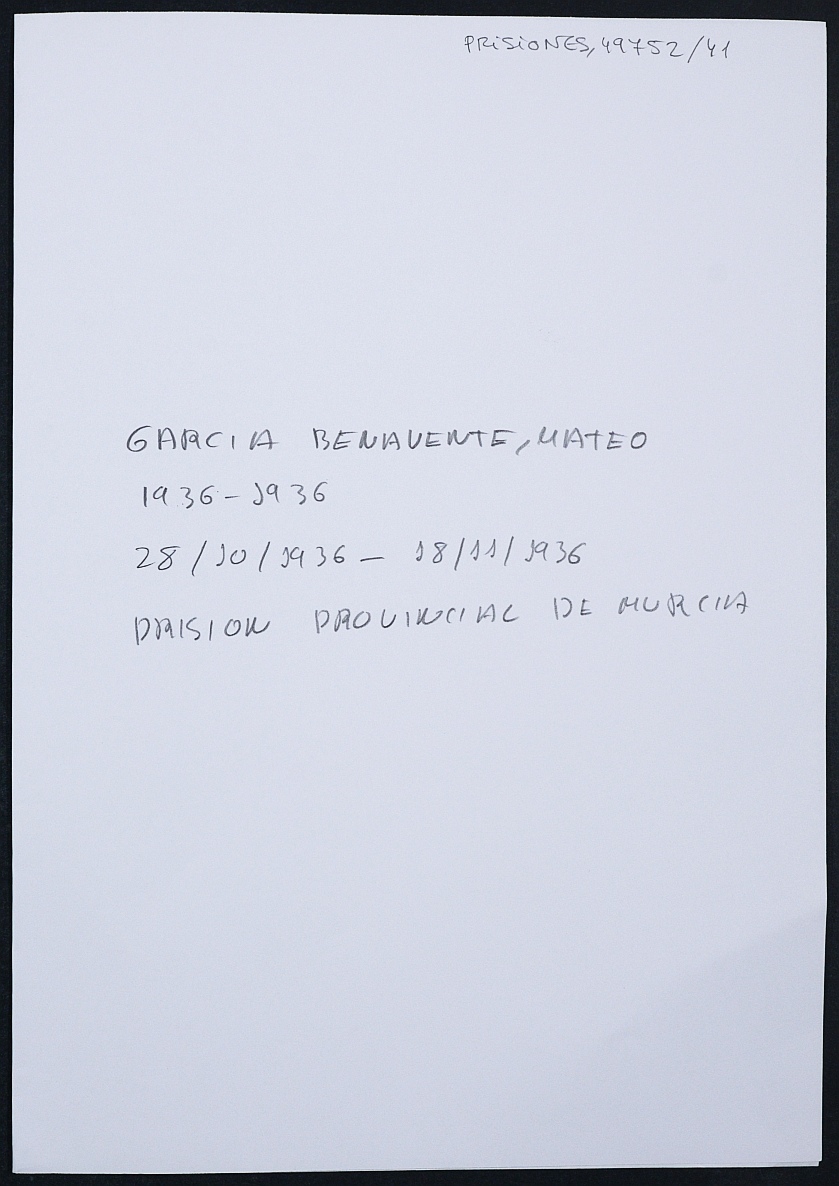 PRISIONES, 49752/41
GARCIA BENAVENTE, MATEO
1936-1936
28/10/1936 - 18/11/1936
PRISION PROVINCIAL DE MURCIA